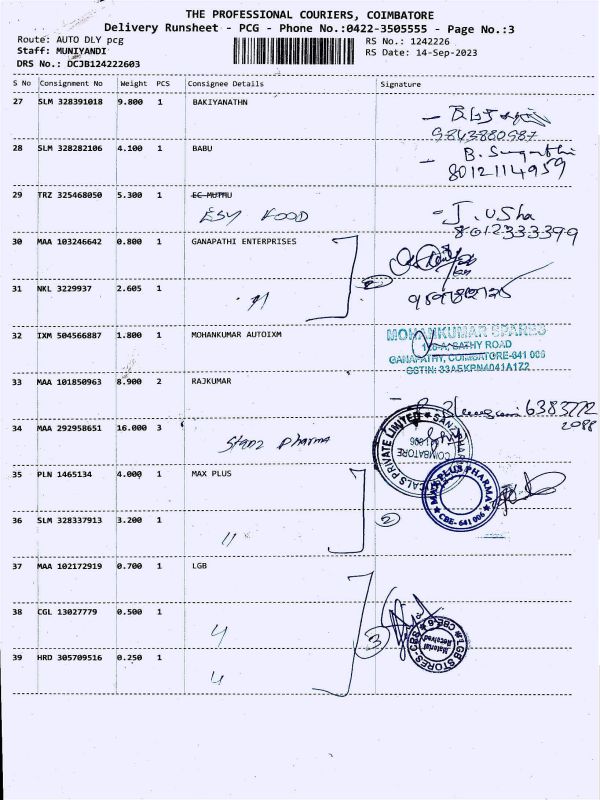 THE PROFESSIONAL COURIERS, COIMBATORE
Delivery Runsheet - PCG - Phone No.:0422-3505555 - Page No.:3
Route: AUTO DLY pcg
RS No.: 1242226
Staff: MUNIYANDI
RS Date: 14-Sep-2023
DRS No.: DCJB124222603
S No Consignment No Weight PCS Consignee Details Signature
27 SLM 328391018 9.800 1 BAKIYANATHN
9843880987
28 SLM 328282106 4.100 1 BABU
B.
8012114959
29 TRZ 325468050 5.300 1 EC MUTHU
ESY FOOD
J. Usha
8012333399
30 MAA 103246642 0.800 1 GANAPATHI ENTERPRISES
31 NKL 3229937 2.605 1
"
32 IXM 504566887 1.800 1 MOHANKUMAR AUTOIXM
MOHANKUMAR SPARES
SATHY ROAD
GANAPATHY, COIMBATORE-641 006
GSTIN: 33AEKPN4041A1Z2
33 MAA 101850963 8.900 2 RAJKUMAR
6383772
2088
34 MAA 292958651 16.000 3
Stanz pharma
PRIVATE LIMITED
COIMBATORE
35 PLN 1465134 4.000 1 MAX PLUS
MAX PLUS PHARMA
CBE-641 006
36 SLM 328337913 3.200 1
"
2
37 MAA 102172919 0.700 1 LGB
38 CGL 13027779 0.500 1
"
3
LGB STORES-CBE
Material
Received
39 HRD 305709516 0.250 1
"